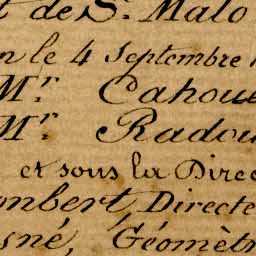 de St. Malo
le 4 Septembre
Mr. Cahoue
Mr. Radou
et sous la Direc
mbert, Directe
sné, Géomètr